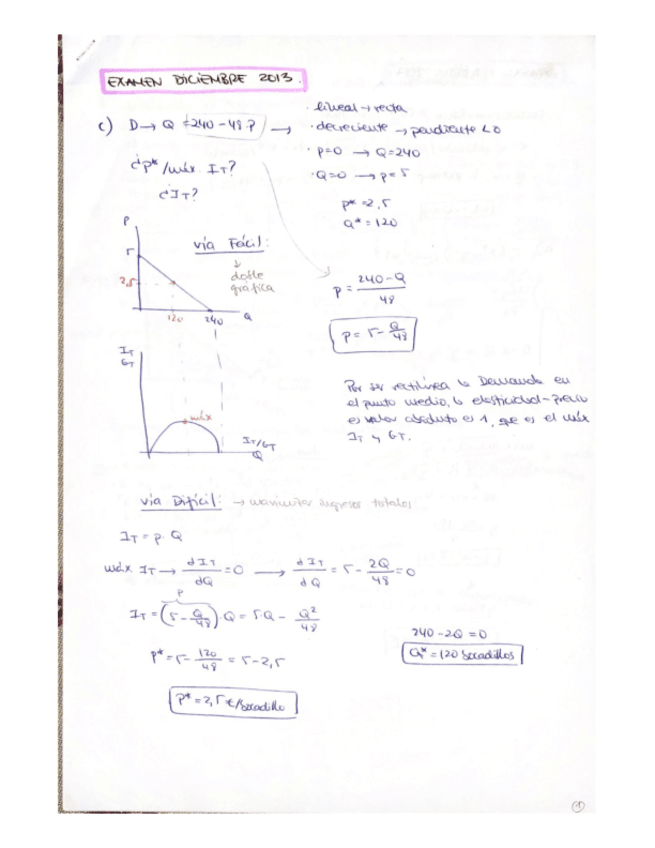 EXAMEN DICIEMBRE 2013.
c) D → Q = 240 - 48·P →
· lineal → recta
· decreciente → pendiente < 0
· p=0 → Q=240
· Q=0 → p=5
¿p* / máx. IT?
¿IT?
p* = 2,5
Q* = 120
P
5
2,5
120
240
Q
vía Fácil:
↓
doble
gráfica
p = 240-Q / 48
p = 5 - Q/48
IT
GT
máx
IT/GT
Q
Por ser rectilínea la Demanda en
el punto medio, la elasticidad-precio
es valor absoluto es 1, que es el máx
IT y GT.
vía Difícil: → maximizar ingresos totales
IT = p · Q
máx IT → dIT/dQ = 0 → dIT/dQ = 5 - 2Q/48 = 0
P
IT = (5 - Q/48) · Q = 5·Q - Q²/48
240 - 2Q = 0
Q* = 120 bocadillos
P* = 5 - 120/48 = 5 - 2,5
P* = 2,5 €/bocadillo
1